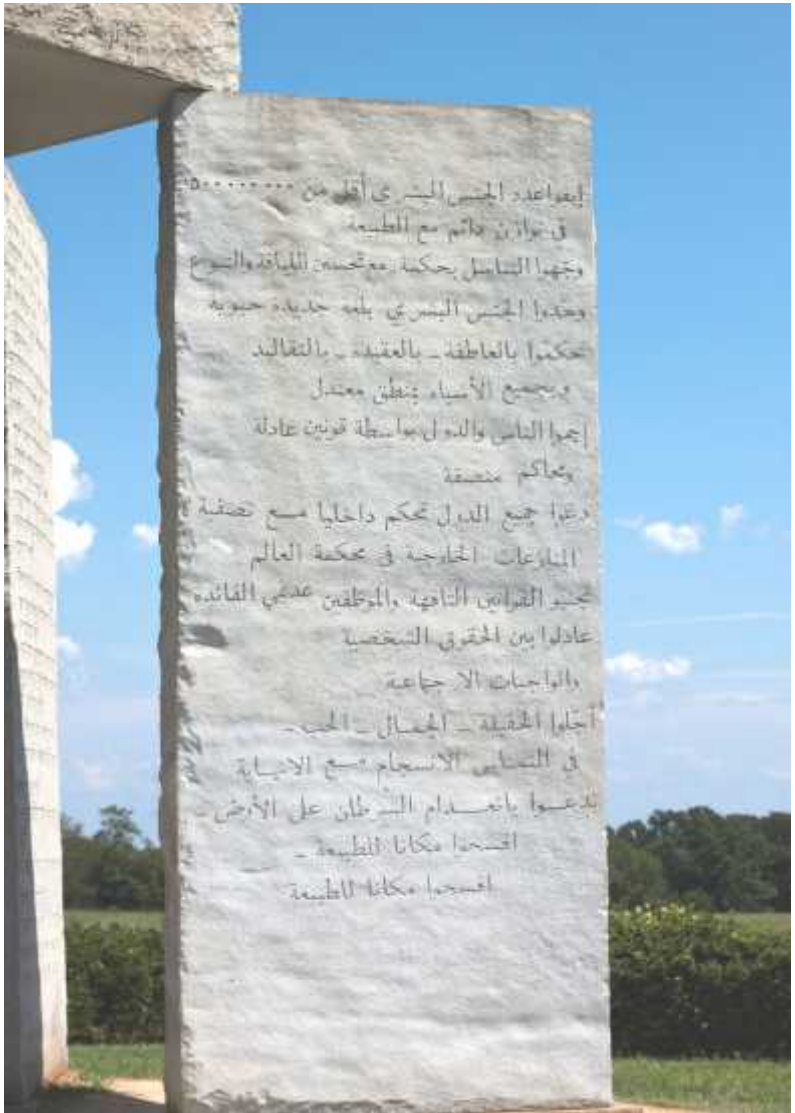 إبقوا عدد الجنس البشري أقل من ٥٠٠٠٠٠٠٠٠
في توازن دائم مع الطبيعة
وجهوا التناسل بحكمة مع تحسين اللياقة والتنوع
وحدوا الجنس البشري بلغة جديدة حيوية
تحكموا بالعاطفة - بالعقيدة - بالتقاليد
وبجميع الأشياء بمنطق معتدل
إحموا الناس والدول بواسطة قونين عادلة
ومحاكم منصفة
دعوا جميع الدول تحكم داخليا مع تصفية
المنازعات الخارجية في محكمة العالم
تجنبوا القوانين التافهة والموظفين عديمي الفائدة
عادلوا بين الحقوق الشخصية
والواجبات الاجتماعية
أجلوا الحقيقة - الجمال - الحب -
في التماس الانسجام مع
بانعدام السرطان على الأرض -
افسحوا مكانا للطبيعة -
افسحوا مكانا للطبيعة